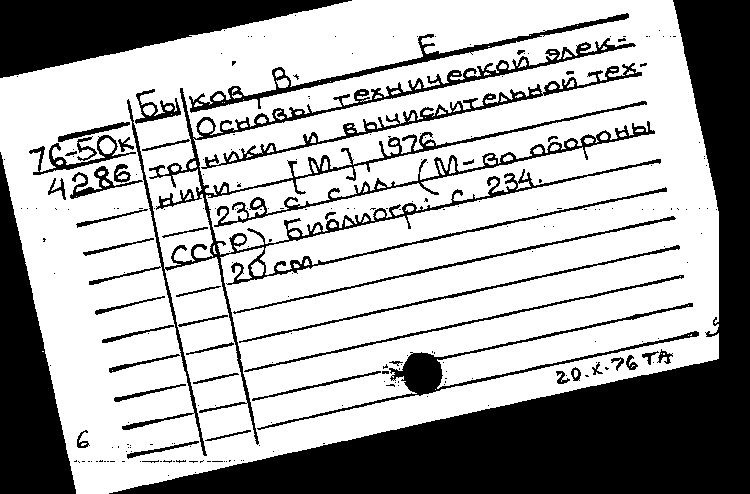 Быков, В. Е
76-50к Основы технической элек-
4286 троники и вычислительной тех-
ники. [М.], 1976.
239 с. с ил. (М-во обороны
СССР). Библиогр.: с. 234.
20 см.
20.X.76 ТА
6